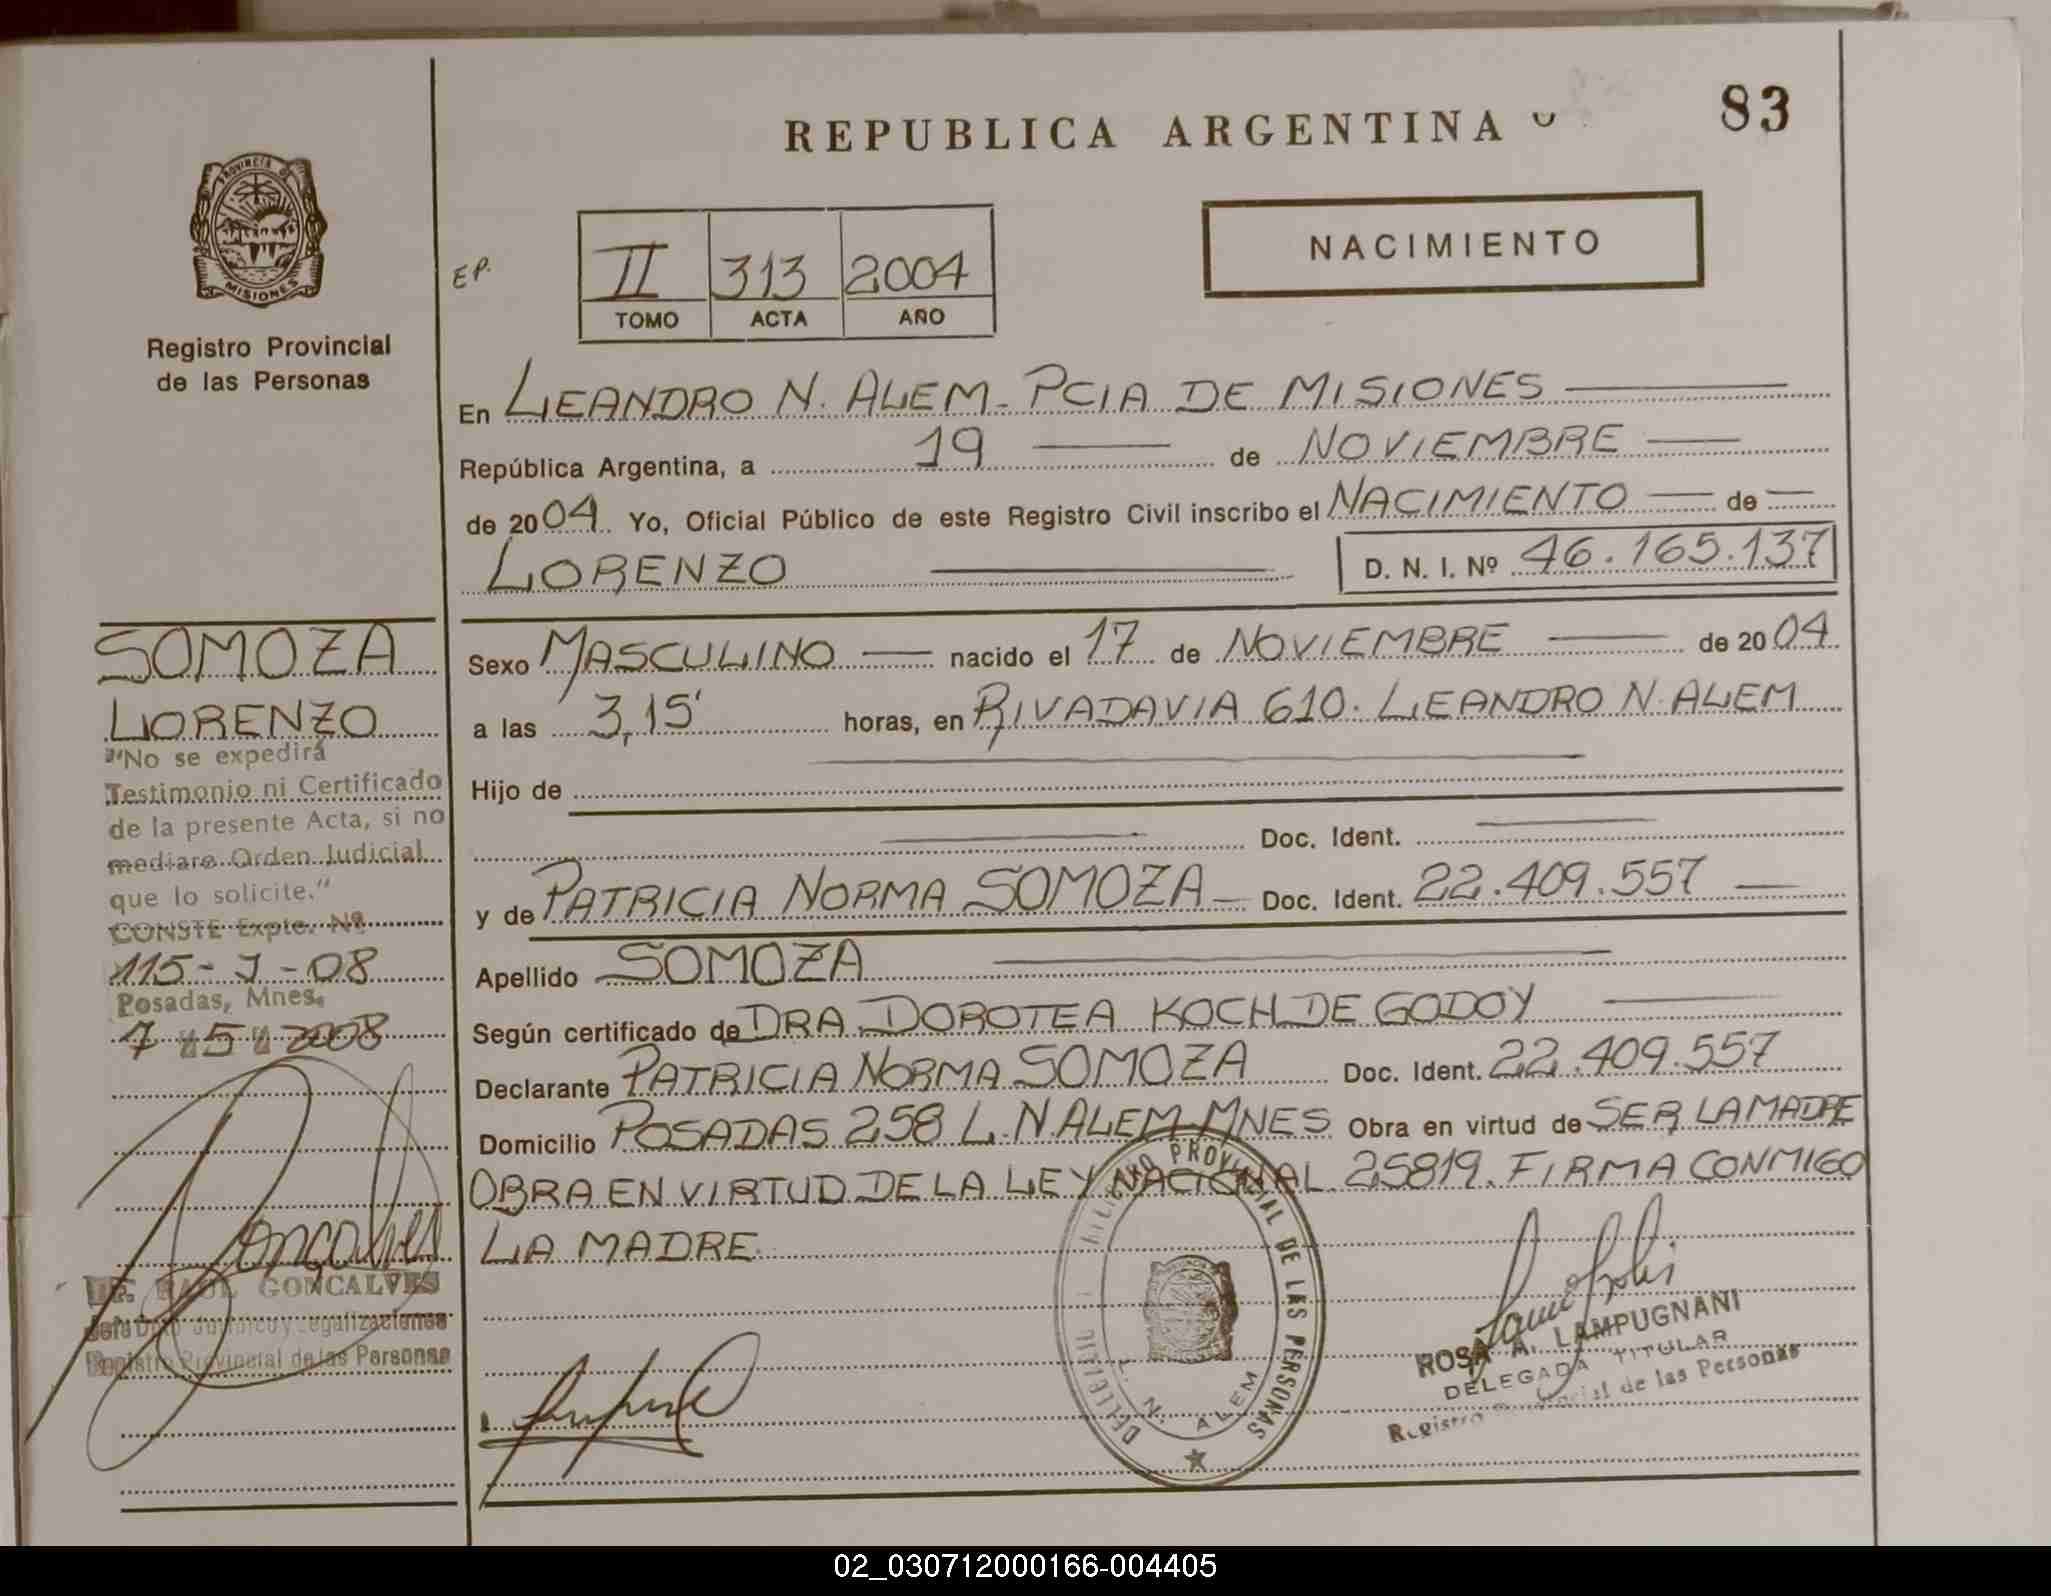 REPUBLICA ARGENTINA
83
PROVINCIA D
MISIONES
Registro Provincial
de las Personas
EP.
II 313 2004
TOMO ACTA AÑO
NACIMIENTO
En LEANDRO N. ALEM - PCIA DE MISIONES
República Argentina, a 19 de NOVIEMBRE
de 2004 Yo, Oficial Público de este Registro Civil inscribo el NACIMIENTO de
LORENZO D. N. I. Nº 46.165.137
Sexo MASCULINO nacido el 17 de NOVIEMBRE de 2004
a las 3,15' horas, en RIVADAVIA 610. LEANDRO N. ALEM
Hijo de
Doc. Ident.
y de PATRICIA NORMA SOMOZA Doc. Ident. 22.409.557
Apellido SOMOZA
Según certificado de DRA. DOROTEA KOCH DE GODOY
Declarante PATRICIA NORMA SOMOZA Doc. Ident. 22.409.557
Domicilio POSADAS 258 L. N. ALEM - MNES Obra en virtud de SER LA MADRE
OBRA EN VIRTUD DE LA LEY NACIONAL 25819. FIRMA CONMIGO
LA MADRE.
SOMOZA
LORENZO
"No se expedirá
Testimonio ni Certificado
de la presente Acta, si no
mediare Orden Judicial
que lo solicite."
CONSTE Expte. Nº
115-J-08
Posadas, Mnes.
7 5 2008
Goncalves
RAUL GONCALVES
Jefe Dpto Jurídico y Legalizaciones
Registro Provincial de las Personas
PROVINCIAL DE LAS PERSONAS
L. N. ALEM
ROSA A. LAMPUGNANI
DELEGADA TITULAR
Registro Provincial de las Personas
02_030712000166-004405